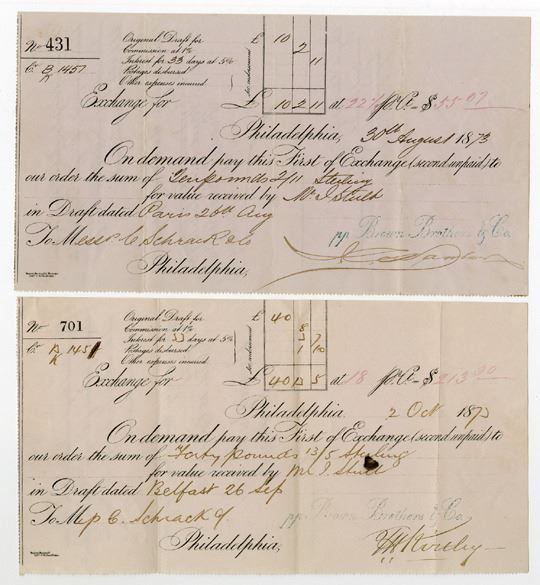 No 431
Original Draft for £ 10
Commission at 1% 2
Interest for 33 days at 5% 11
Postages disbursed
Other expenses incurred
to reimbursed
C. B/A 1457
Exchange for £ 10 2 11 at 22¼ p. Ct. $55.07
Philadelphia, 30th August 1873
On demand pay this First of Exchange (second unpaid) to
our order the sum of Ten pounds 2/11 Sterling
for value received by Mr J. Stult
in Draft dated Paris 26th Aug
To Messr C. Schrack & Co
pp Brown Brothers & Co.
Philadelphia,
No 701
Original Draft for £ 40
Commission at 1% 8
Interest for 33 days at 5% 7
Postages disbursed 1 10
Other expenses incurred
Exchange for £ 40 13 5 at 18 p. Ct. $213.30
Philadelphia. 2 Oct 187
On demand pay this First of Exchange (second unpaid) to
our order the sum of Forty Pounds 13/5 Sterling
for value received by Mr J. Stult
in Draft dated Belfast 26 Sep
To M C. Schrack
pp Brown Brothers & Co.
Philadelphia,